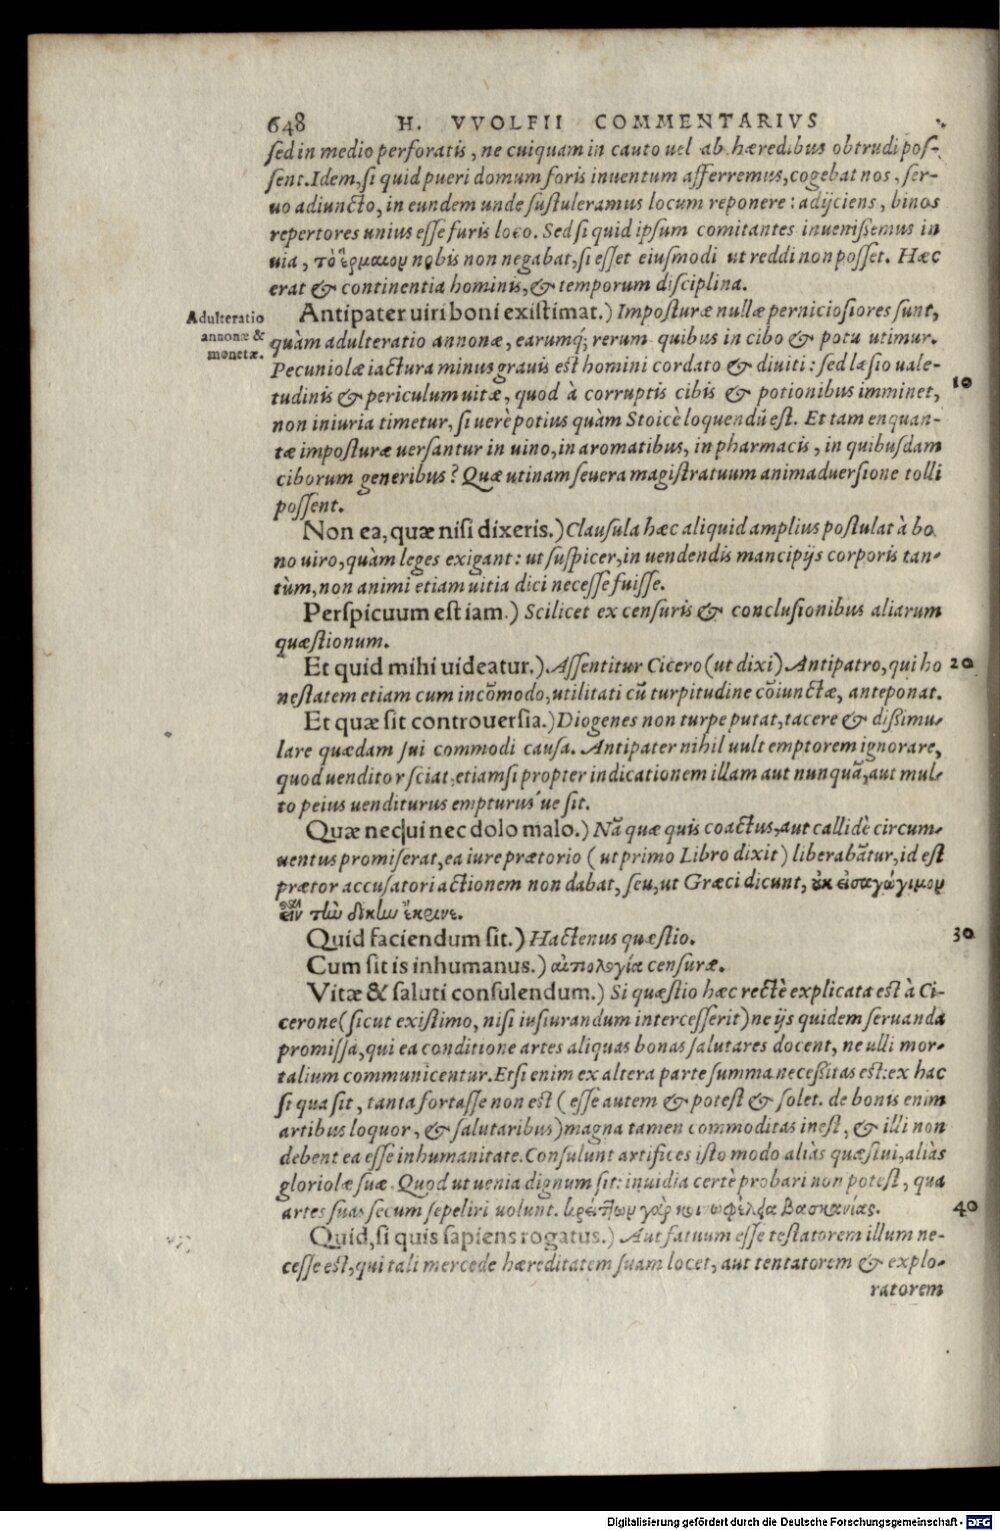 648 H. VVOLFII COMMENTARIVS
sed in medio perforatis, ne cuiquam in cauto uel ab hæredibus obtrudi pos-
sent. Idem, si quid pueri domum foris inuentum afferremus, cogebat nos, ser-
uo adiuncto, in eundem unde sustuleramus locum reponere: adijciens, binos
repertores unius esse furis loco. Sed si quid ipsum comitantes inuenißemus in
uia, τὸ ἕρμαιον nobis non negabat, si esset eiusmodi ut reddi non posset. Hæc
erat & continentia hominis, & temporum disciplina.
Adulteratio
annonæ &
monetæ.
Antipater uiri boni existimat.) Imposturæ nullæ perniciosiores sunt,
quàm adulteratio annonæ, earumq́; rerum quibus in cibo & potu utimur.
Pecuniolæ iactura minus grauis est homini cordato & diuiti: sed læsio uale-
tudinis & periculum uitæ, quod à corruptis cibis & potionibus imminet, 10
non iniuria timetur, si uerè potius quàm Stoicè loquendū est. Et tamen quan-
tæ imposturæ uersantur in uino, in aromatibus, in pharmacis, in quibusdam
ciborum generibus? Quæ utinam seuera magistratuum animaduersione tolli
possent.
Non ea, quæ nisi dixeris.) Clausula hæc aliquid amplius postulat à bo
no uiro, quàm leges exigant: ut suspicer, in uendendis mancipijs corporis tan-
tùm, non animi etiam uitia dici necesse fuisse.
Perspicuum est iam.) Scilicet ex censuris & conclusionibus aliarum
quæstionum.
Et quid mihi uideatur.) Assentitur Cicero (ut dixi) Antipatro, qui ho 20
nestatem etiam cum incōmodo, utilitati cū turpitudine cōiunctæ, anteponat.
Et quæ sit controuersia.) Diogenes non turpe putat, tacere & dißimu-
lare quædam sui commodi causa. Antipater nihil uult emptorem ignorare,
quod uenditor sciat, etiamsi propter indicationem illam aut nunquā, aut mul-
to peius uenditurus empturus ue sit.
Quæ nec ui nec dolo malo.) Nā quæ quis coactus, aut callidè circum-
uentus promiserat, ea iure prætorio (ut primo Libro dixit) liberabātur, id est
prætor accusatori actionem non dabat, seu, ut Græci dicunt, οὐκ εἰσαγώγιμον
τὴν δίκην ἔκρινε.
Quid faciendum sit.) Hactenus quæstio. 30
Cum sit is inhumanus.) αἰτιολογία censuræ.
Vitæ & saluti consulendum.) Si quæstio hæc rectè explicata est à Ci-
cerone (sicut existimo, nisi iusiurandum intercesserit) ne ijs quidem seruanda
promissa, qui ea conditione artes aliquas bonas salutares docent, ne ulli mor-
talium communicentur. Etsi enim ex altera parte summa neceßitas est: ex hac
si qua sit, tanta fortasse non est (esse autem & potest & solet. de bonis enim
artibus loquor, & salutaribus) magna tamen commoditas inest, & illi non
debent ea esse inhumanitate. Consulunt artifices isto modo aliàs quæstui, aliàs
gloriolæ suæ. Quod ut uenia dignum sit: inuidia certè probari non potest, qua
artes suas secum sepeliri uolunt. κρείττων γὰρ ὠφέλεια βασκανίας. 40
Quid, si quis sapiens rogatus.) Aut fatuum esse testatorem illum ne-
cesse est, qui tali mercede hæreditatem suam locet, aut tentatorem & explo-
ratorem
Digitalisierung gefördert durch die Deutsche Forschungsgemeinschaft - DFG